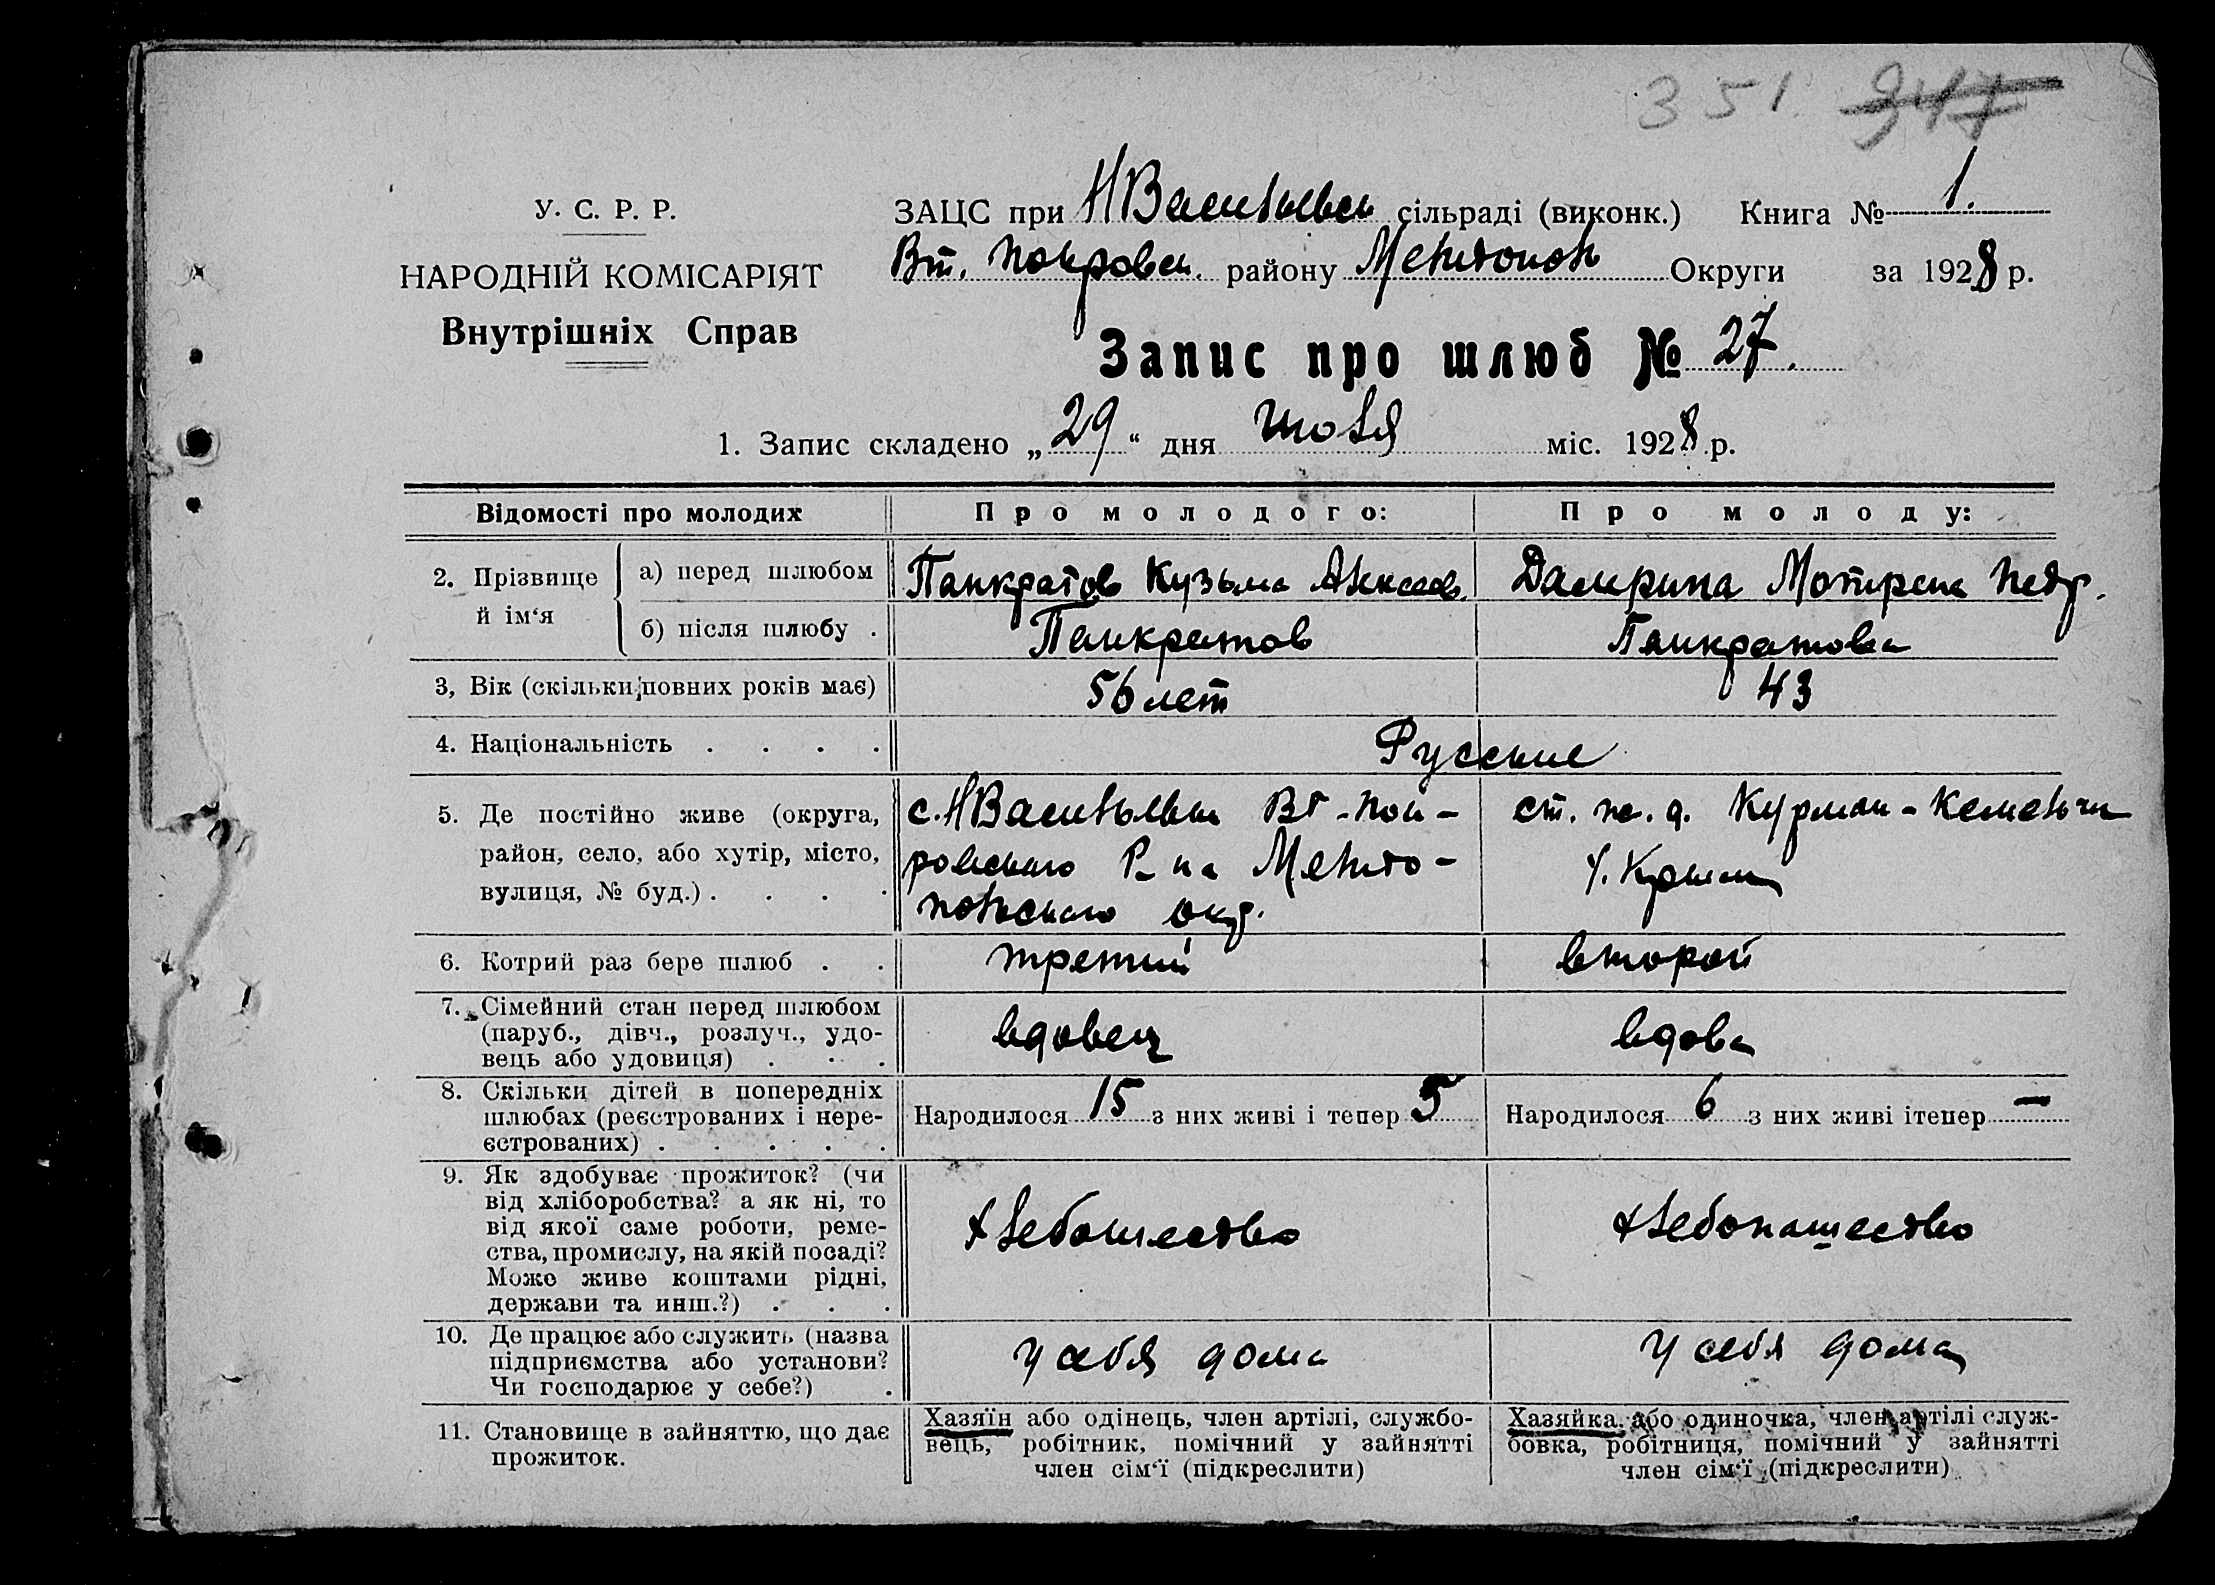 351. 947
У. С. Р. Р.
НАРОДНІЙ КОМІСАРІЯТ
Внутрішніх Справ
ЗАЦС при НВасильевск сільраді (виконк.) Книга № 1.
Вт. Покровск. району Мелитополь Округи за 1928 р.
Запис про шлюб № 27.
1. Запис складено „29“ дня июля міс. 1928 р.
Відомості про молодих Про молодого: Про молоду:
2. Прізвище й ім‘я
а) перед шлюбом Панкратов Кузьма Алексеев. Мотирена Петр.
б) після шлюбу . Панкратов Панкратова
3, Вік (скільки повних років має) 56 лет 43
4. Національність . . . . Русские
5. Де постійно живе (округа,
район, село, або хутір, місто,
вулиця, № буд.) . . . .
с. НВасильевка Вт-Пок-
ровского Р-на Мелито-
польского окр.
ст. ж. д. Курман-Кемельчи
Крыма
6. Котрий раз бере шлюб . . третий второй
7. Сімейний стан перед шлюбом
(паруб., дівч., розлуч., удо-
вець або удовиця) . . .
вдовец вдова
8. Скільки дітей в попередніх
шлюбах (реєстрованих і нере-
єстрованих) . . . . .
Народилося 15 з них живі і тепер 5 Народилося 6 з них живі ітепер —
9. Як здобуває прожиток? (чи
від хліборобства? а як ні, то
від якої саме роботи, реме-
ства, промислу, на якій посаді?
Може живе коштами рідні,
держави та инш.?) . . .
хлебошество хлебопашество
10. Де працює або служить (назва
підприємства або установи?
Чи господарює у себе?) .
у себя дома у себя дома
11. Становище в зайняттю, що дає
прожиток.
Хазяїн або одінець, член артілі, службо-
вець, робітник, помічний у зайнятті
член сім‘ї (підкреслити)
Хазяйка або одиночка, член артілі служ-
бовка, робітниця, помічний у зайнятті
член сім‘ї (підкреслити)